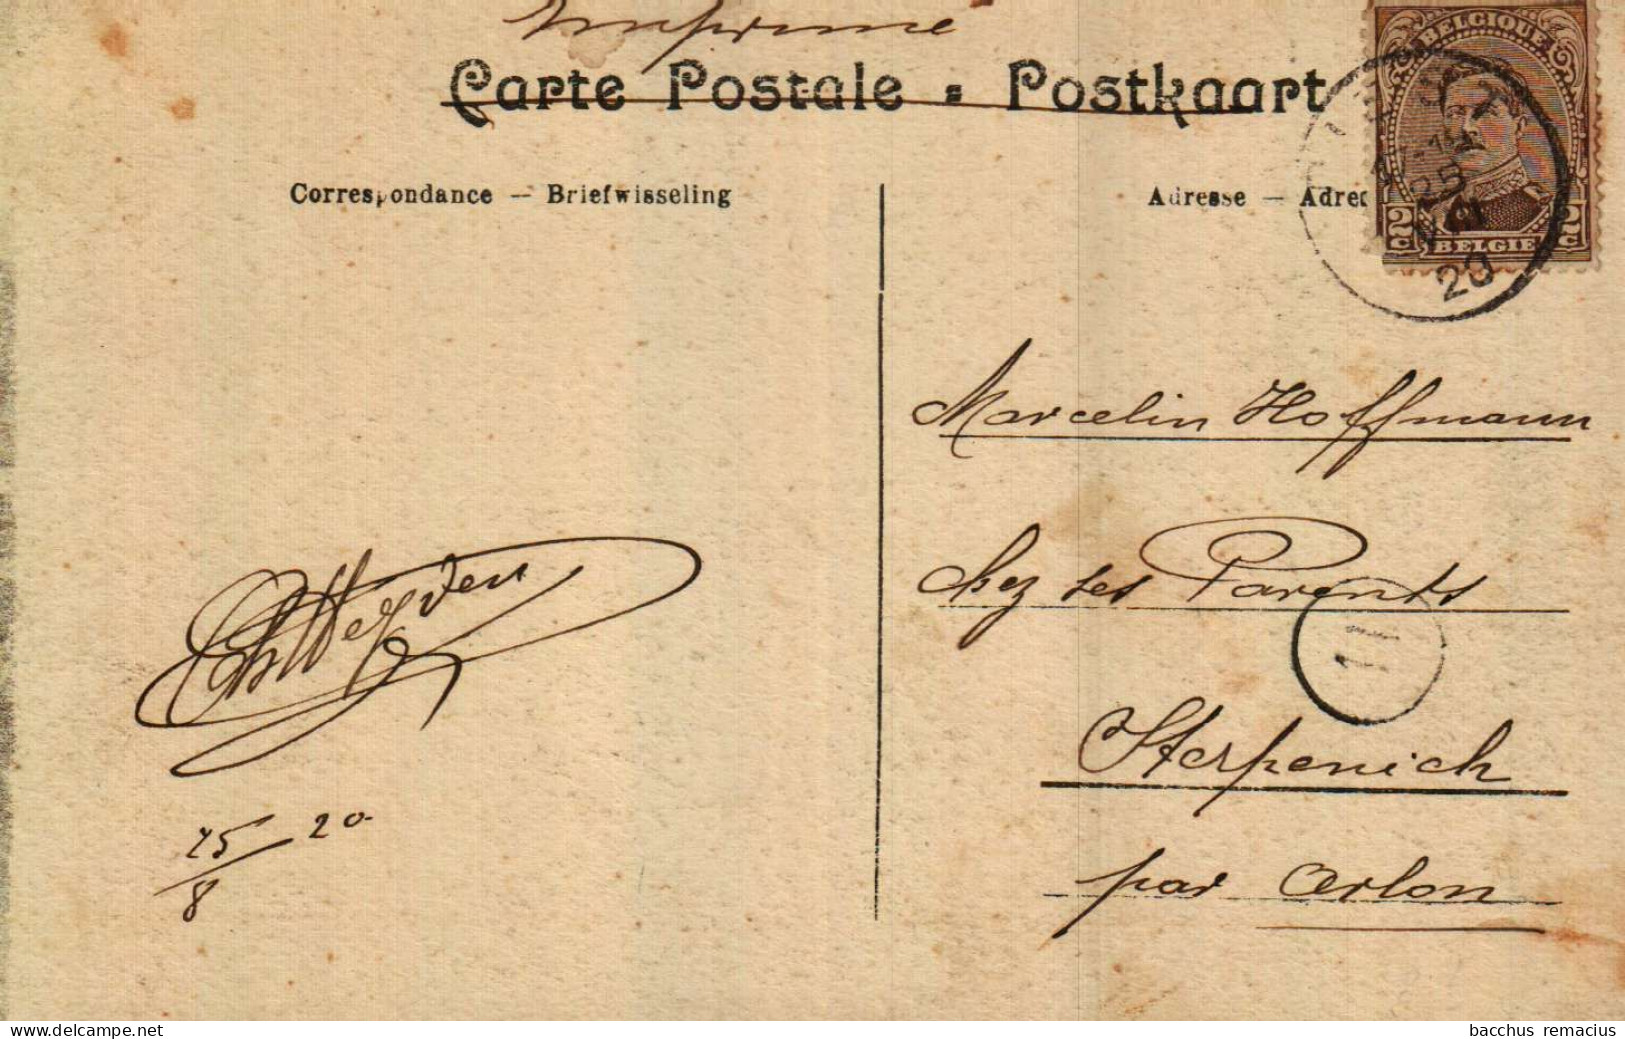 Imprimé
Carte Postale = Postkaart
BELGIQUE
Correspondance — Briefwisseling
Adresse — Adre
25
VIII
20
2c BELGIE 2c
Marcelin Hoffmann
chez ses Parents
11
Sterpenich
par Arlon
25/8 20
www.delcampe.net
bacchus remacius